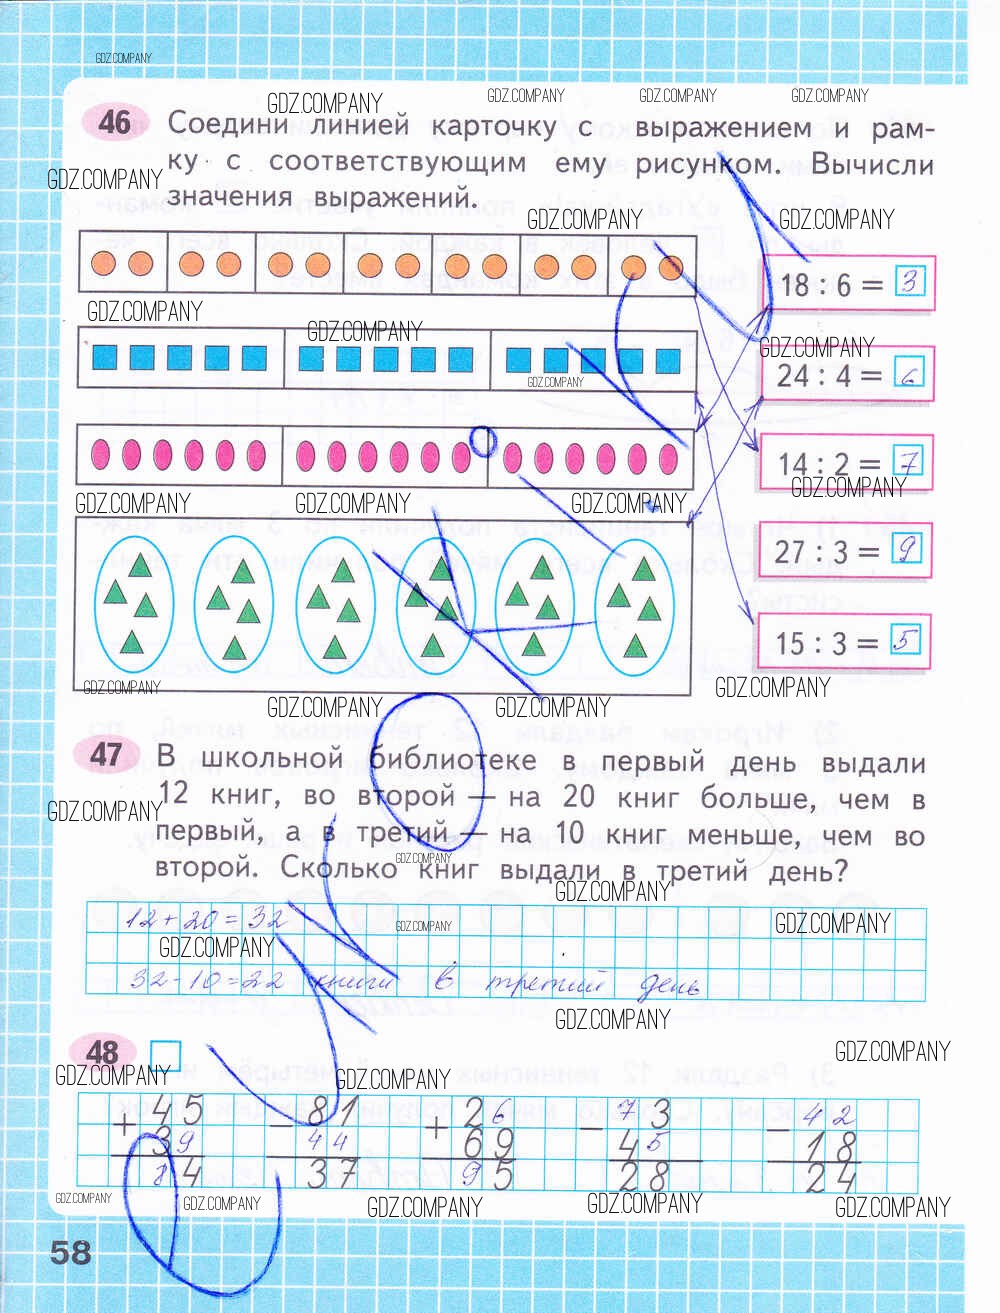 GDZ.COMPANY
GDZ.COMPANY GDZ.COMPANY GDZ.COMPANY GDZ.COMPANY
46 Соедини линией карточку с выражением и рам-
ку с соответствующим ему рисунком. Вычисли
GDZ.COMPANY
значения выражений.
GDZ.COMPANY GDZ.COMPANY
18 : 6 = 3
GDZ.COMPANY
GDZ.COMPANY
GDZ.COMPANY
24 : 4 = 6
GDZ.COMPANY
14 : 2 = 7
GDZ.COMPANY
GDZ.COMPANY GDZ.COMPANY GDZ.COMPANY
27 : 3 = 9
15 : 3 = 5
GDZ.COMPANY GDZ.COMPANY
GDZ.COMPANY GDZ.COMPANY
47 В школьной библиотеке в первый день выдали
12 книг, во второй — на 20 книг больше, чем в
GDZ.COMPANY
первый, а в третий — на 10 книг меньше, чем во
GDZ.COMPANY
второй. Сколько книг выдали в третий день?
GDZ.COMPANY
12+20=32
GDZ.COMPANY GDZ.COMPANY
GDZ.COMPANY
32-10=22 книги в третий день
GDZ.COMPANY
48
GDZ.COMPANY
GDZ.COMPANY GDZ.COMPANY
45 81 26 73 42
+ − + − −
39 44 69 45 18
84 37 95 28 24
GDZ.COMPANY GDZ.COMPANY GDZ.COMPANY GDZ.COMPANY GDZ.COMPANY
58